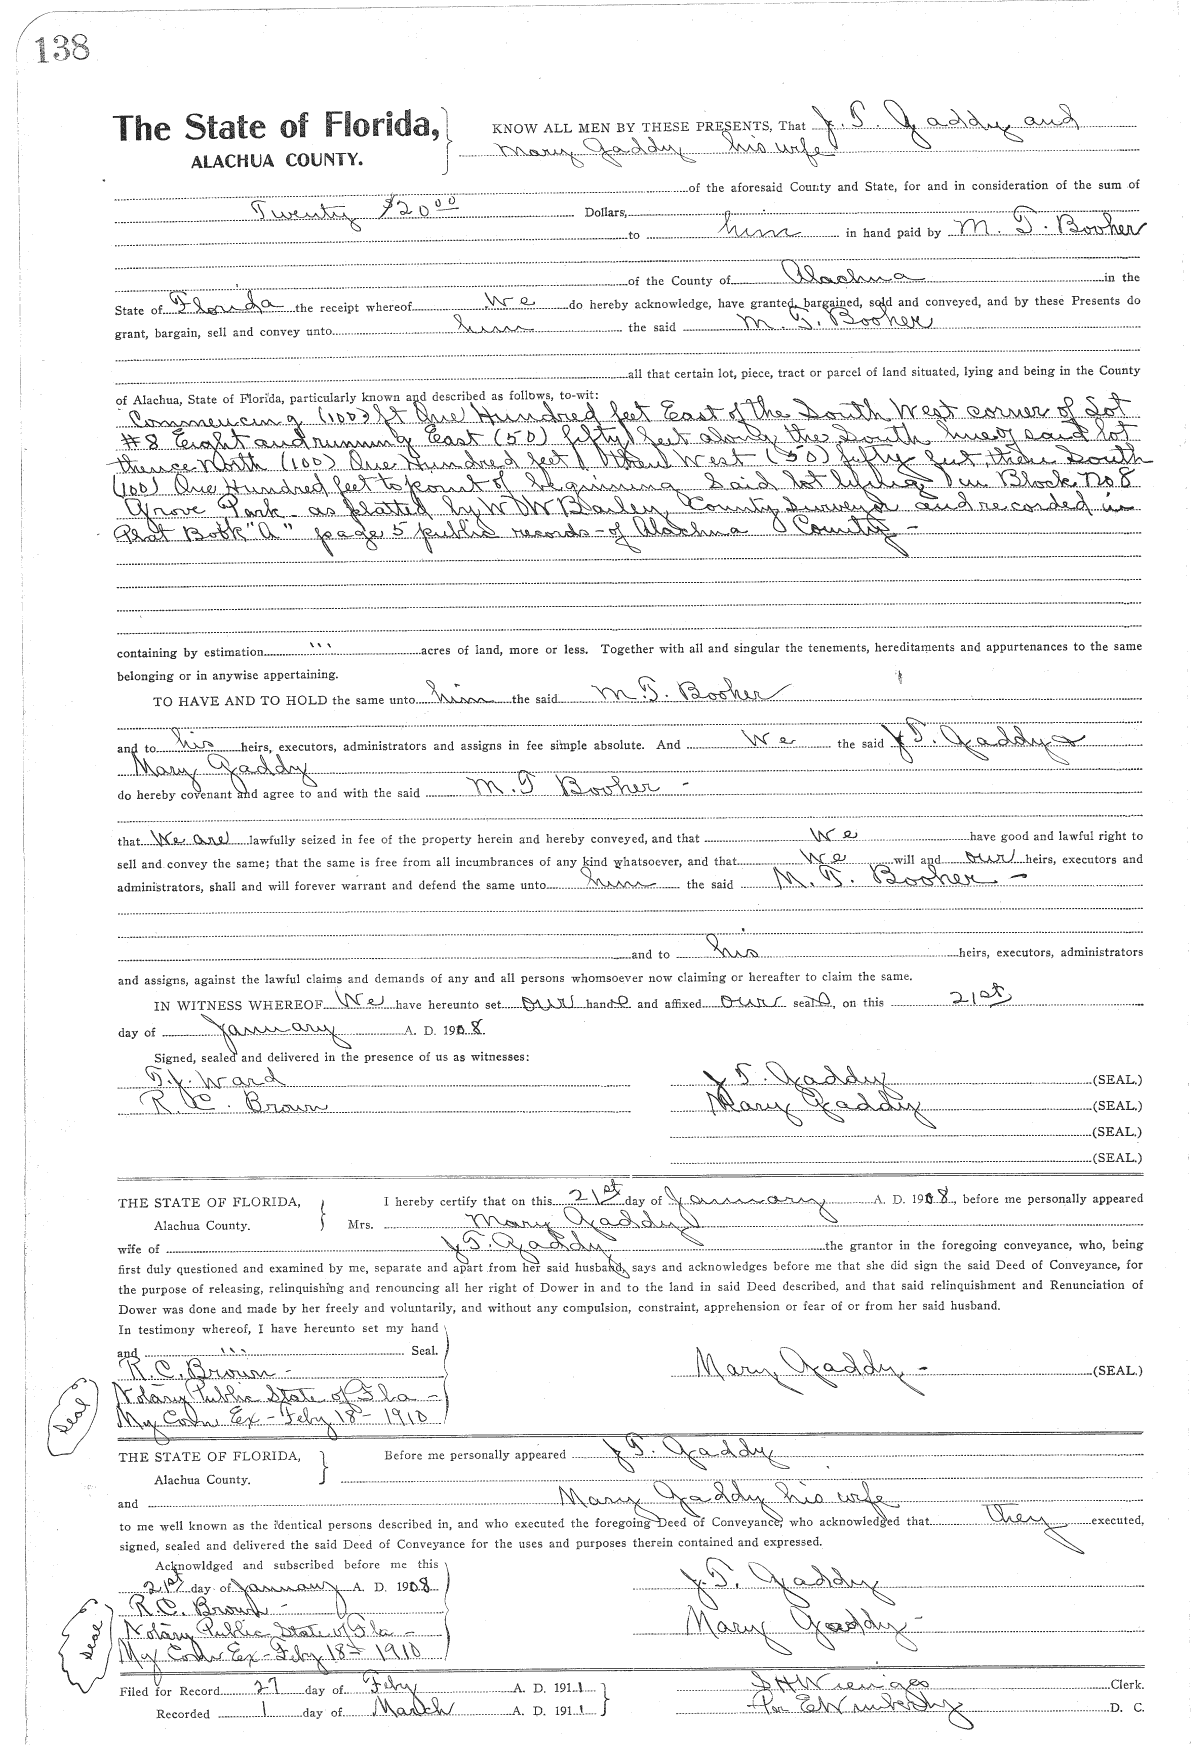 138
The State of Florida, KNOW ALL MEN BY THESE PRESENTS, That J. T. Gaddy and
ALACHUA COUNTY. Mary Gaddy his wife
of the aforesaid County and State, for and in consideration of the sum of
Twenty $20 00 Dollars,
to him in hand paid by M. T. Booher
of the County of Alachua in the
State of Florida the receipt whereof We do hereby acknowledge, have granted, bargained, sold and conveyed, and by these Presents do
grant, bargain, sell and convey unto him the said M. T. Booher
all that certain lot, piece, tract or parcel of land situated, lying and being in the County
of Alachua, State of Florida, particularly known and described as follows, to-wit:
Commencing (100) ft One Hundred feet East of the South West corner of Lot
#8 Eight and running East (50) fifty feet along the South line of said lot
thence North (100) One Hundred feet thence West (50) fifty feet, thence South
(100) One Hundred feet to point of beginning Said lot lying in Block No 8
Grove Park as platted by W D W Barley County Surveyor and recorded in
Plat Book "A" page 5 public records - of Alachua County -
containing by estimation acres of land, more or less. Together with all and singular the tenements, hereditaments and appurtenances to the same
belonging or in anywise appertaining.
TO HAVE AND TO HOLD the same unto him the said M. T. Booher
and to his heirs, executors, administrators and assigns in fee simple absolute. And We the said J T. Gaddy &
Mary Gaddy
do hereby covenant and agree to and with the said M. T Booher -
that We are lawfully seized in fee of the property herein and hereby conveyed, and that We have good and lawful right to
sell and convey the same; that the same is free from all incumbrances of any kind whatsoever, and that We will and our heirs, executors and
administrators, shall and will forever warrant and defend the same unto him the said M. T. Booher -
and to his heirs, executors, administrators
and assigns, against the lawful claims and demands of any and all persons whomsoever now claiming or hereafter to claim the same.
IN WITNESS WHEREOF We have hereunto set our hands and affixed our seals, on this 21st
day of January A. D. 1908.
Signed, sealed and delivered in the presence of us as witnesses:
T. J. Ward J T. Gaddy (SEAL.)
R. C. Brown Mary Gaddy (SEAL.)
(SEAL.)
(SEAL.)
THE STATE OF FLORIDA, I hereby certify that on this 21st day of January A. D. 1908, before me personally appeared
Alachua County. Mrs. Mary Gaddy
wife of J T. Gaddy the grantor in the foregoing conveyance, who, being
first duly questioned and examined by me, separate and apart from her said husband, says and acknowledges before me that she did sign the said Deed of Conveyance, for
the purpose of releasing, relinquishing and renouncing all her right of Dower in and to the land in said Deed described, and that said relinquishment and Renunciation of
Dower was done and made by her freely and voluntarily, and without any compulsion, constraint, apprehension or fear of or from her said husband.
In testimony whereof, I have hereunto set my hand
and Seal.
R. C. Brown - Mary Gaddy - (SEAL.)
Notary Public State of Fla -
My Com Ex - Feby 18 - 1910
Seal
THE STATE OF FLORIDA, Before me personally appeared J T. Gaddy
Alachua County.
and Mary Gaddy his wife
to me well known as the identical persons described in, and who executed the foregoing Deed of Conveyance, who acknowledged that they executed,
signed, sealed and delivered the said Deed of Conveyance for the uses and purposes therein contained and expressed.
Acknowldged and subscribed before me this
21st day of January A. D. 1908 J. T. Gaddy
R. C. Brown -
Notary Public State of Fla - Mary Gaddy -
My Com Ex - Feby 18 - 1910
Seal
Filed for Record 27 day of Feby A. D. 1911 S H Wienges Clerk.
Recorded 1 day of March A. D. 1911 per E Wimberly D. C.